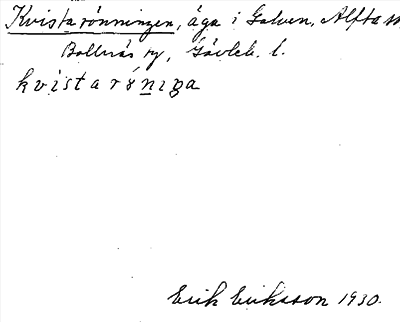 Kvistarönningen, äga i Galven, Alfta sn
Bollnäs ry, Gävleb. l.
kvistarøniŋa
Erik Eriksson 1930.